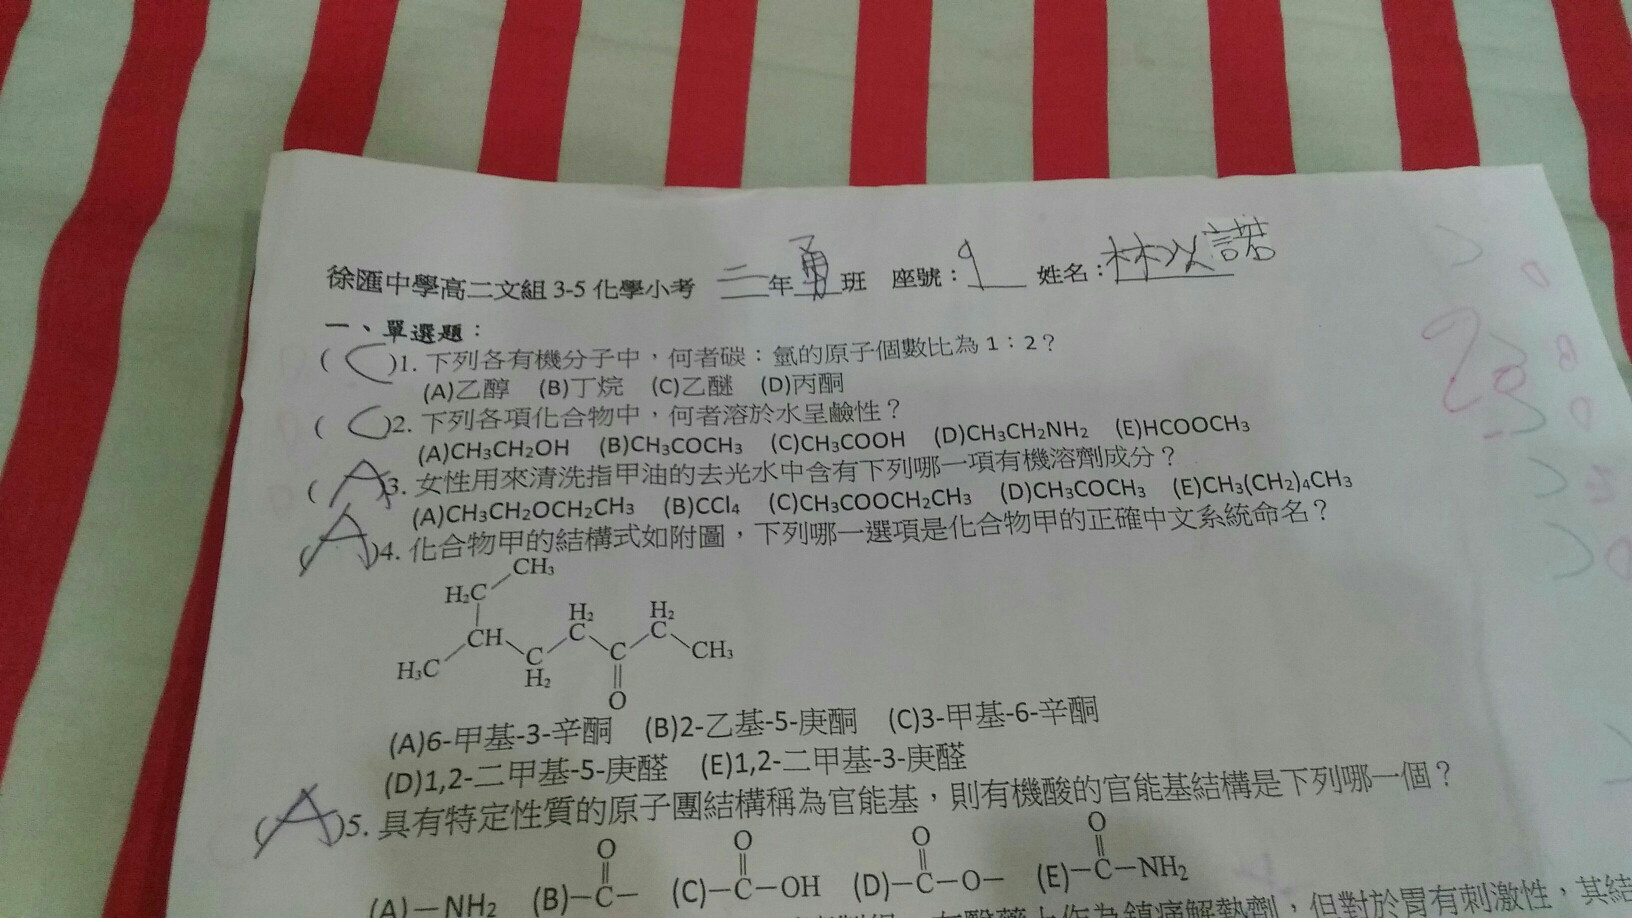 徐匯中學高二文組 3-5 化學小考 二年勇班 座號:9 姓名:林以諾
一、單選題:
( C )1. 下列各有機分子中,何者碳:氫的原子個數比為 1:2?
(A)乙醇 (B)丁烷 (C)乙醚 (D)丙酮
( C )2. 下列各項化合物中,何者溶於水呈鹼性?
(A)CH₃CH₂OH (B)CH₃COCH₃ (C)CH₃COOH (D)CH₃CH₂NH₂ (E)HCOOCH₃
( A )3. 女性用來清洗指甲油的去光水中含有下列哪一項有機溶劑成分?
(A)CH₃CH₂OCH₂CH₃ (B)CCl₄ (C)CH₃COOCH₂CH₃ (D)CH₃COCH₃ (E)CH₃(CH₂)₄CH₃
( A )4. 化合物甲的結構式如附圖,下列哪一選項是化合物甲的正確中文系統命名?
CH₃
H₂C
H₂ H₂
CH C C
H₃C C C CH₃
H₂
O
(A)6-甲基-3-辛酮 (B)2-乙基-5-庚酮 (C)3-甲基-6-辛酮
(D)1,2-二甲基-5-庚醛 (E)1,2-二甲基-3-庚醛
( A )5. 具有特定性質的原子團結構稱為官能基,則有機酸的官能基結構是下列哪一個?
O O O O
(A)—NH₂ (B)—C— (C)—C—OH (D)—C—O— (E)—C—NH₂
在醫藥上作為鎮痛解熱劑,但對於胃有刺激性,其結